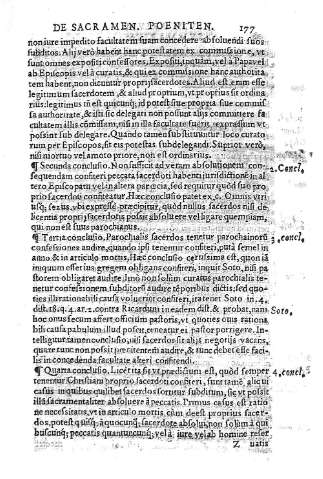 DE SACRAMEN. POENITEN. 177
non iure impedito facultatem suam concedere absoluendi suos
subditos. Alij verò habent hanc potestatem ex commissione, vt
sunt omnes expositi confessores. Expositi, inquàm, vel à Papa vel
ab Episcopis vel à curatis, & qui ex commissione hanc authorita
tem habent, non dicuntur proprij sacerdotes. Aliud est enim esse
legitimum sacerdotem, & aliud proprium, vt proprius sit ordina
rius: legitimus
sa authoritate, & isti sic delegati non possunt alijs committere fa
cultatem illis commissam, nisi in illa facultate fuerit, expressum vt
possint sub delegare. Quando tamen substituuntur loco curato
rum per Episcopos, sit eis potestas subdelegandi. Superior verò,
nisi mortuo vel amoto priore, non est ordinarius.
¶ Secunda conclusio. Non sufficit ad veram absolutionem con-
sequendam confiteri peccata sacerdoti habenti iurisdictione in al
tero Episcopatu vel in altera parœcia, sed requiritur quòd suo pro
prio sacerdoti confiteatur. Hæc conclusio patet ex c. Omnis vtri
usq; sexus, vbi expressè præcipitur, quòd nullus sacerdos nisi de
licentia proprij sacerdotis possit absoluere vel ligare quempiam,
qui non est suus parochianus.
2. Concl.
¶ Tertia conclusio. Parochialis sacerdos tenetur parochianos
confessione audire, quando ipsi tenentur confiteri, puta semel in
anno & in articulo mortis. Hæc conclusio certissima est, quoniā
iniquum esset ius gregem obligans confiteri, inquit Soto, nisi pa
storem obligaret audire. Imò non solùm curatus parochialis te-
netur confessionem subditorū audire tēporibus dictis; sed quo
ties illi rationabili causa voluerint confiteri, ita tenet Soto in 4.
dist. 18. q. 4. ar. 2. contra Ricardum in eadem dist. & probat, nam
hoc onus secum affert officium pastoris, vt quoties oues rationa
bili causa pabulum illud poscerent, eis pastor porrigere. In-
telligitur tamen conclusio, nisi sacerdos sit alijs negotijs vacans,
quare tunc non possit pœnitentem audire, & tunc debet esse faci-
lis in concedenda facultate alteri confitendi.
3. concl.
Soto,
¶ Quarta conclusio. Licèt ita sit vt prædictum est, quòd semper
tenentur Christiani proprio sacerdoti confiteri, sunt tamē aliqui
casus in quibus quilibet sacerdos sortitur subditum, sic vt possit
illū sacramentaliter absoluere à peccatis. Primus casus est ratio
ne necessitatis, vt in articulo mortis, cùm deest proprius sacer-
dos, potest quisq; à quocunq; sacerdote absolui, non solùm à qui
buscunq; peccatis quantumcunq; vel à iure vel ab homine reser
4. concl.
Z uatis